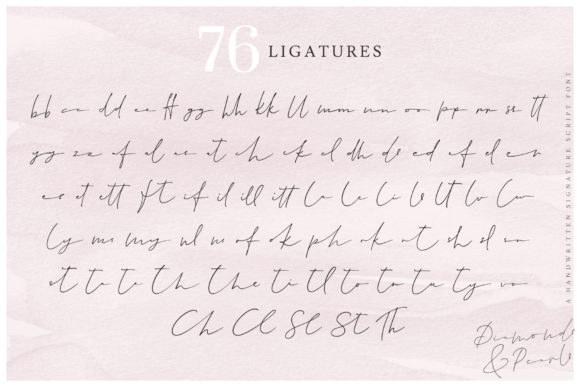 76 LIGATURES
bb cc dd ee ff gg hh kk ll mm nn oo pp rr ss tt
yy zz af al as at ch ck cl dh ds ed ef el er
es et ett ft if il ill itt la le li lt lo
ly ms my nl ns of ok ph rk rt sh sl
st ta te th the ti tl to ty
Ch Cl Sl St Th
Diamonds
& Pearls
A HANDWRITTEN SIGNATURE SCRIPT FONT